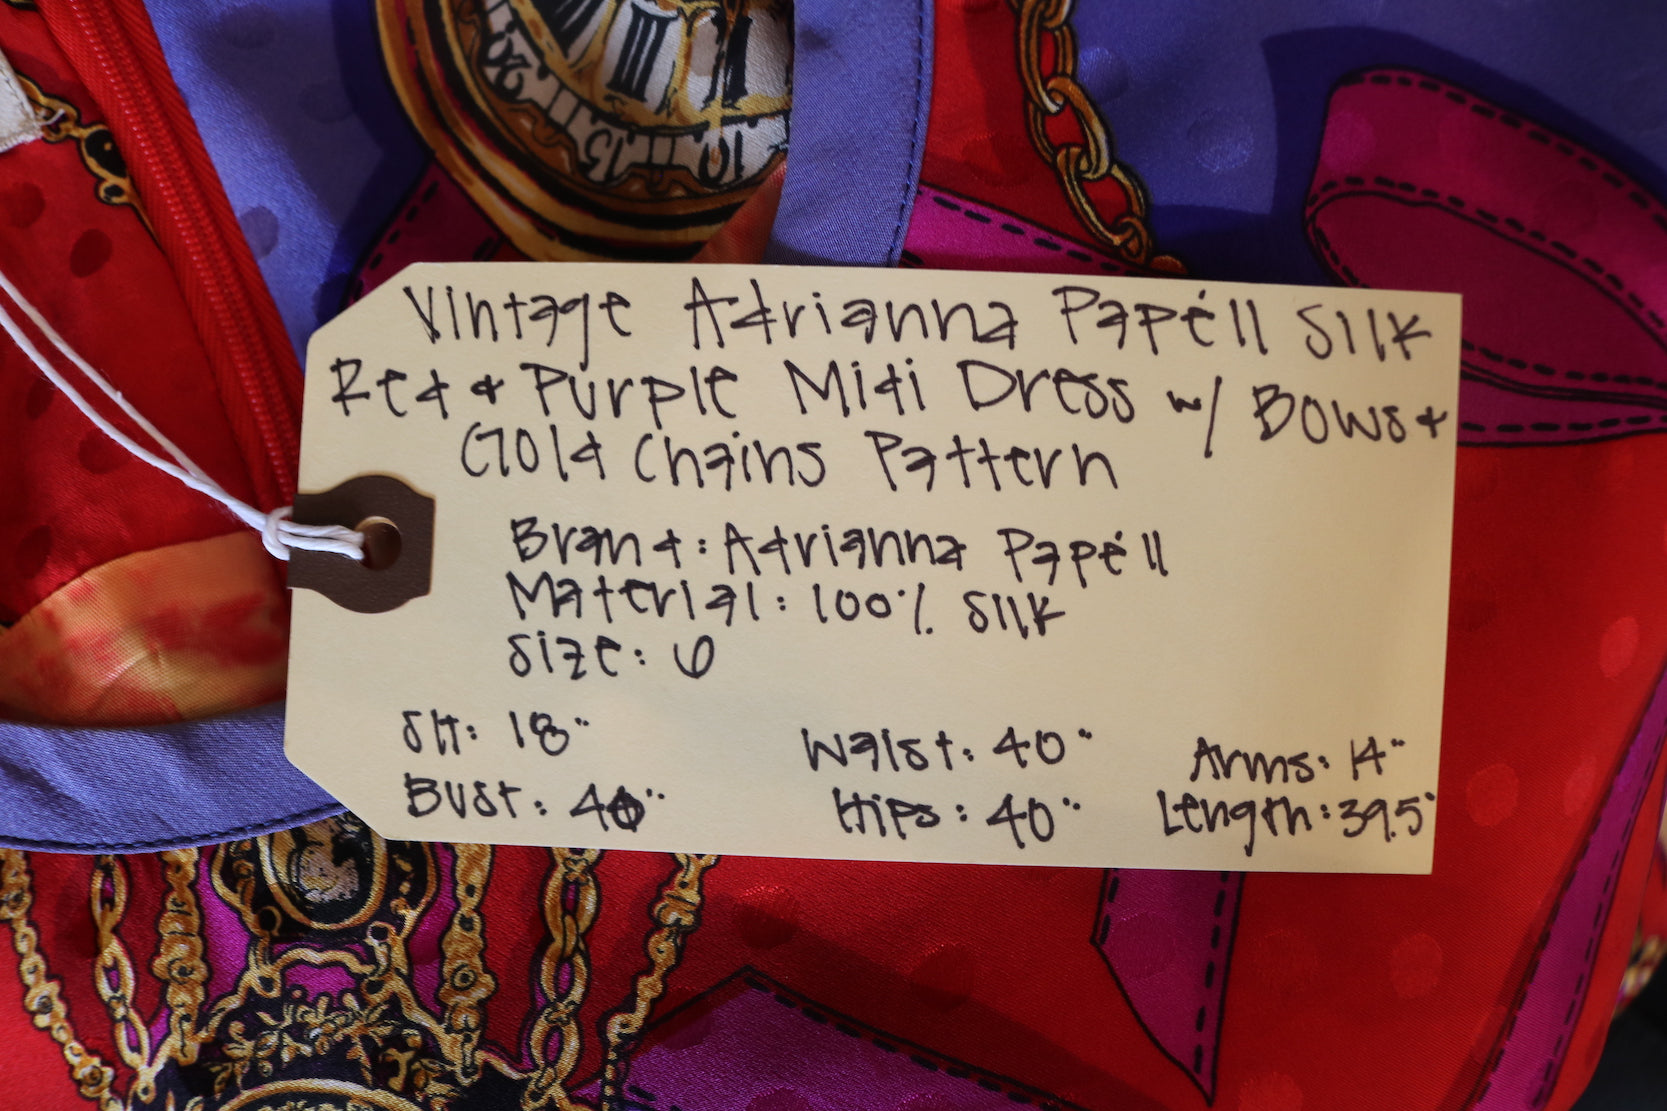 20 15 10
Vintage Adrianna Papéll Silk
Red + Purple Midi Dress w/ Bows +
Gold Chains Pattern
Brand: Adrianna Papéll
Material: 100% Silk
Size: 6
18" Waist: 40" Arms: 14"
Bust: 40" Hips: 40" Length: 39.5"